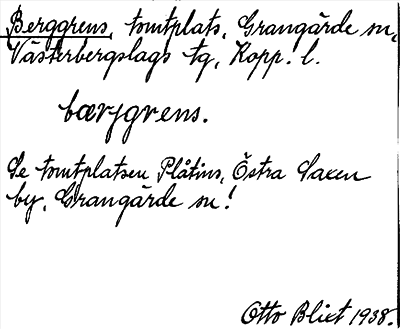 Berggrens, tomtplats, Grangärde sn,
Västerbergslags tg, Kopp. l.
bærjgrens.
Se tomtplatsen Plåtins, Östra Saxen
by, Grangärde sn!
Otto Blixt 1938.